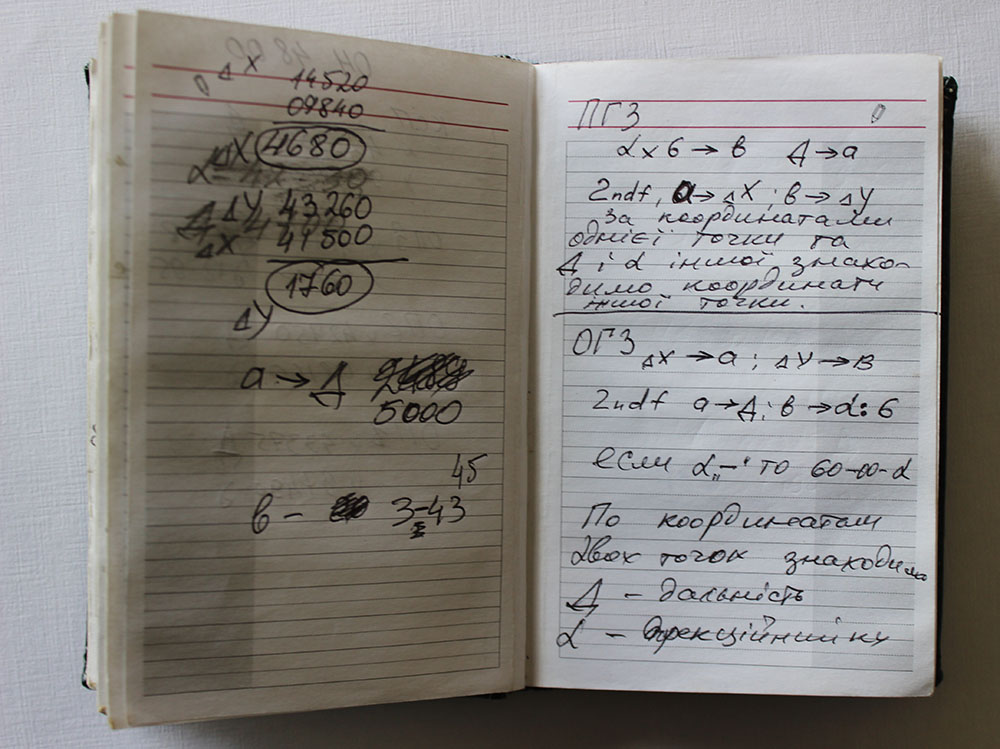 ΔX 14520
09840
ΔX 4680
ΔY 43260
ΔX 41500
1760
ΔY
a → Д
5000
45
в – 3-43
ПГЗ
αx6 → в Д → a
2ndf, a → ΔX; в → ΔY
За координатами
однієї точки та
Д і α іншої знахо-
димо координати
іншої точки.
ОГЗ
ΔX → a; ΔY → в
2ndf a → Д; в → α:6
если α „–" то 60-00-α
По координатам
двох точок знаходимо
Д – дальність
α – дирекційний ку